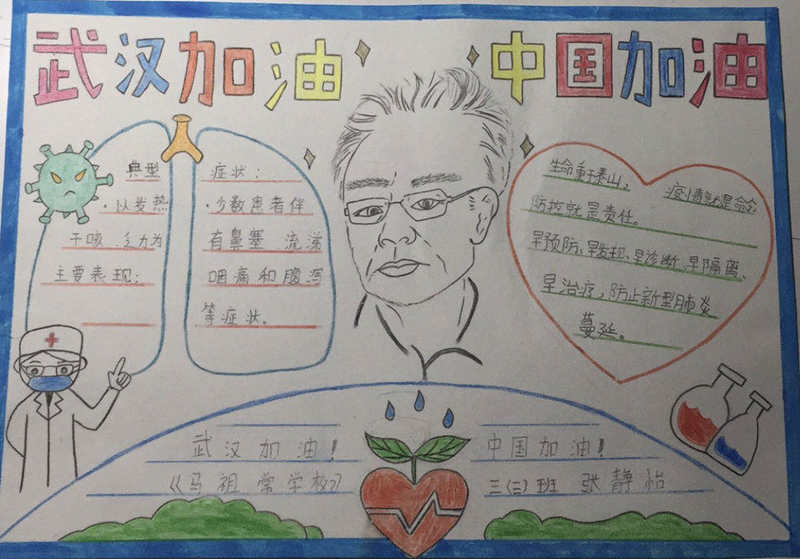 武汉加油 中国加油
典型 症状：
·以发热 ·少数患者伴
干咳 乏力为 有鼻塞 流涕
主要表现； 咽痛和腹泻
等症状.
生命重于泰山，疫情就是命令
防控就是责任。
早预防、早发现、早诊断、早隔离、
早治疗，防止新型肺炎
蔓延。
武汉加油！ 中国加油！
《马祖常学校》 三(三)班 张静怡